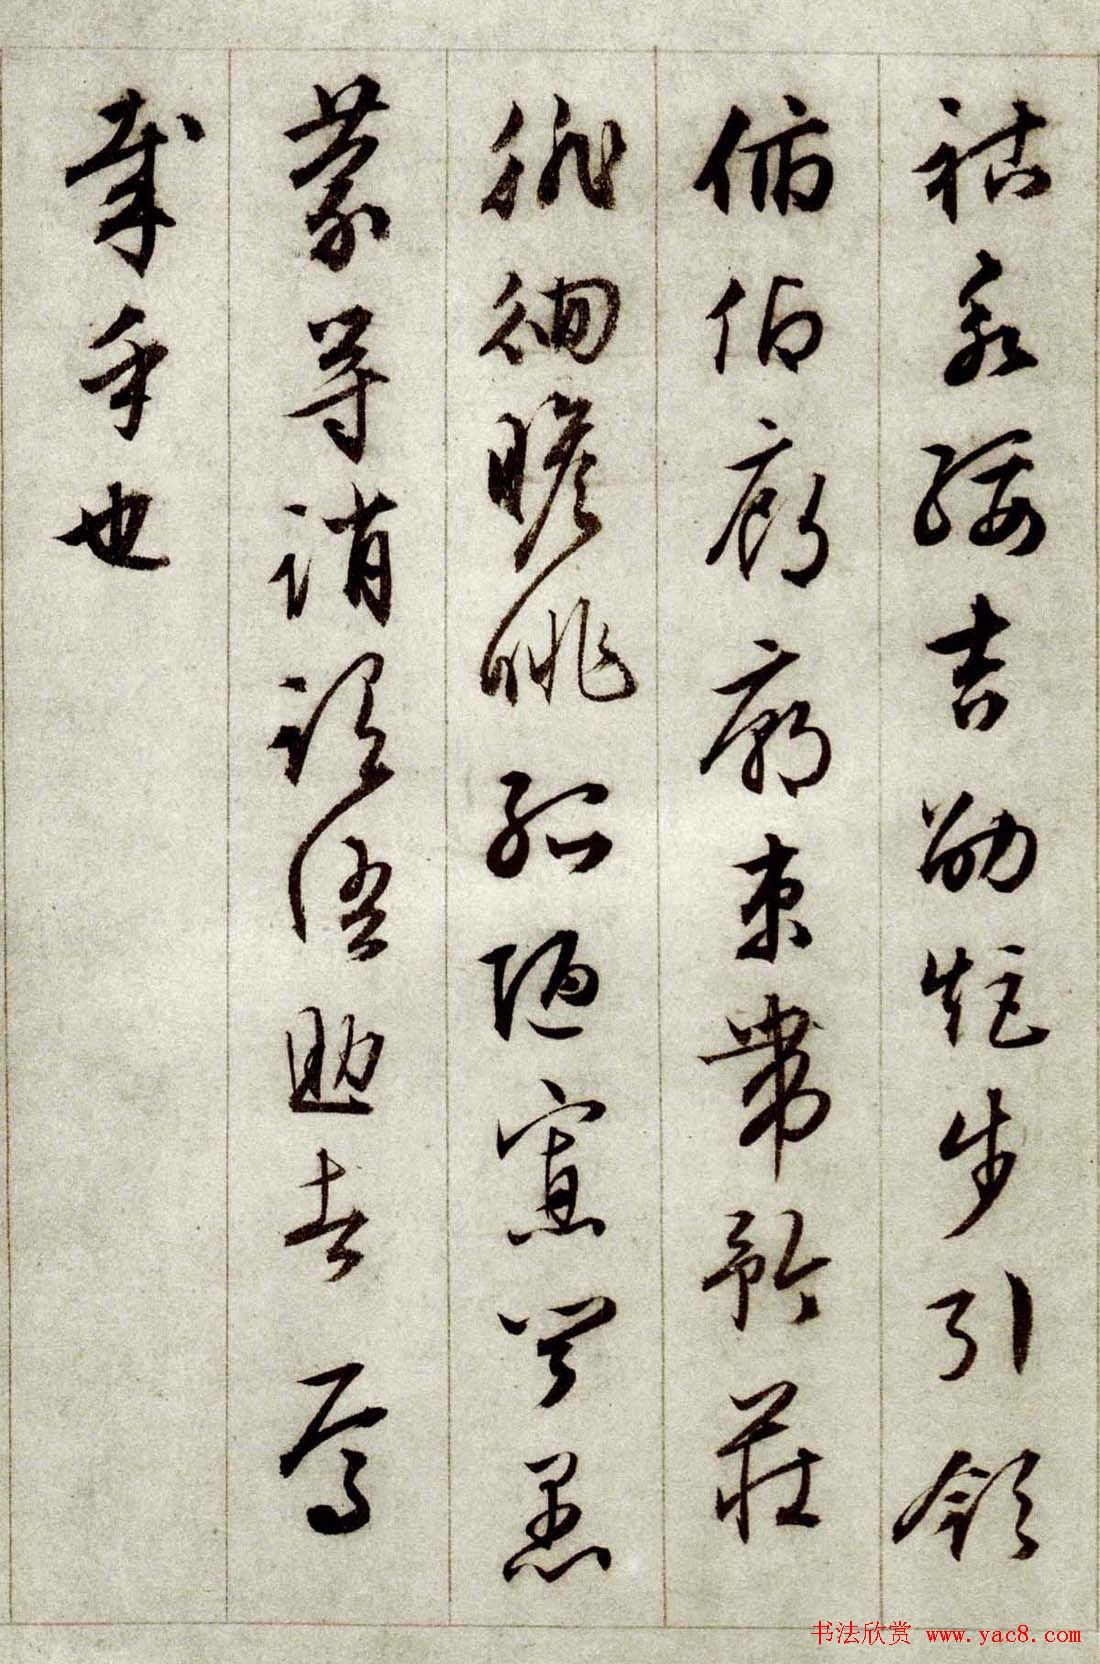 祜永綏吉劭矩步引領
俯仰廊廟束帶矜莊
徘徊瞻眺孤陋寡聞愚
蒙等誚謂語助者焉
哉乎也
书法欣赏 www.yac8.com